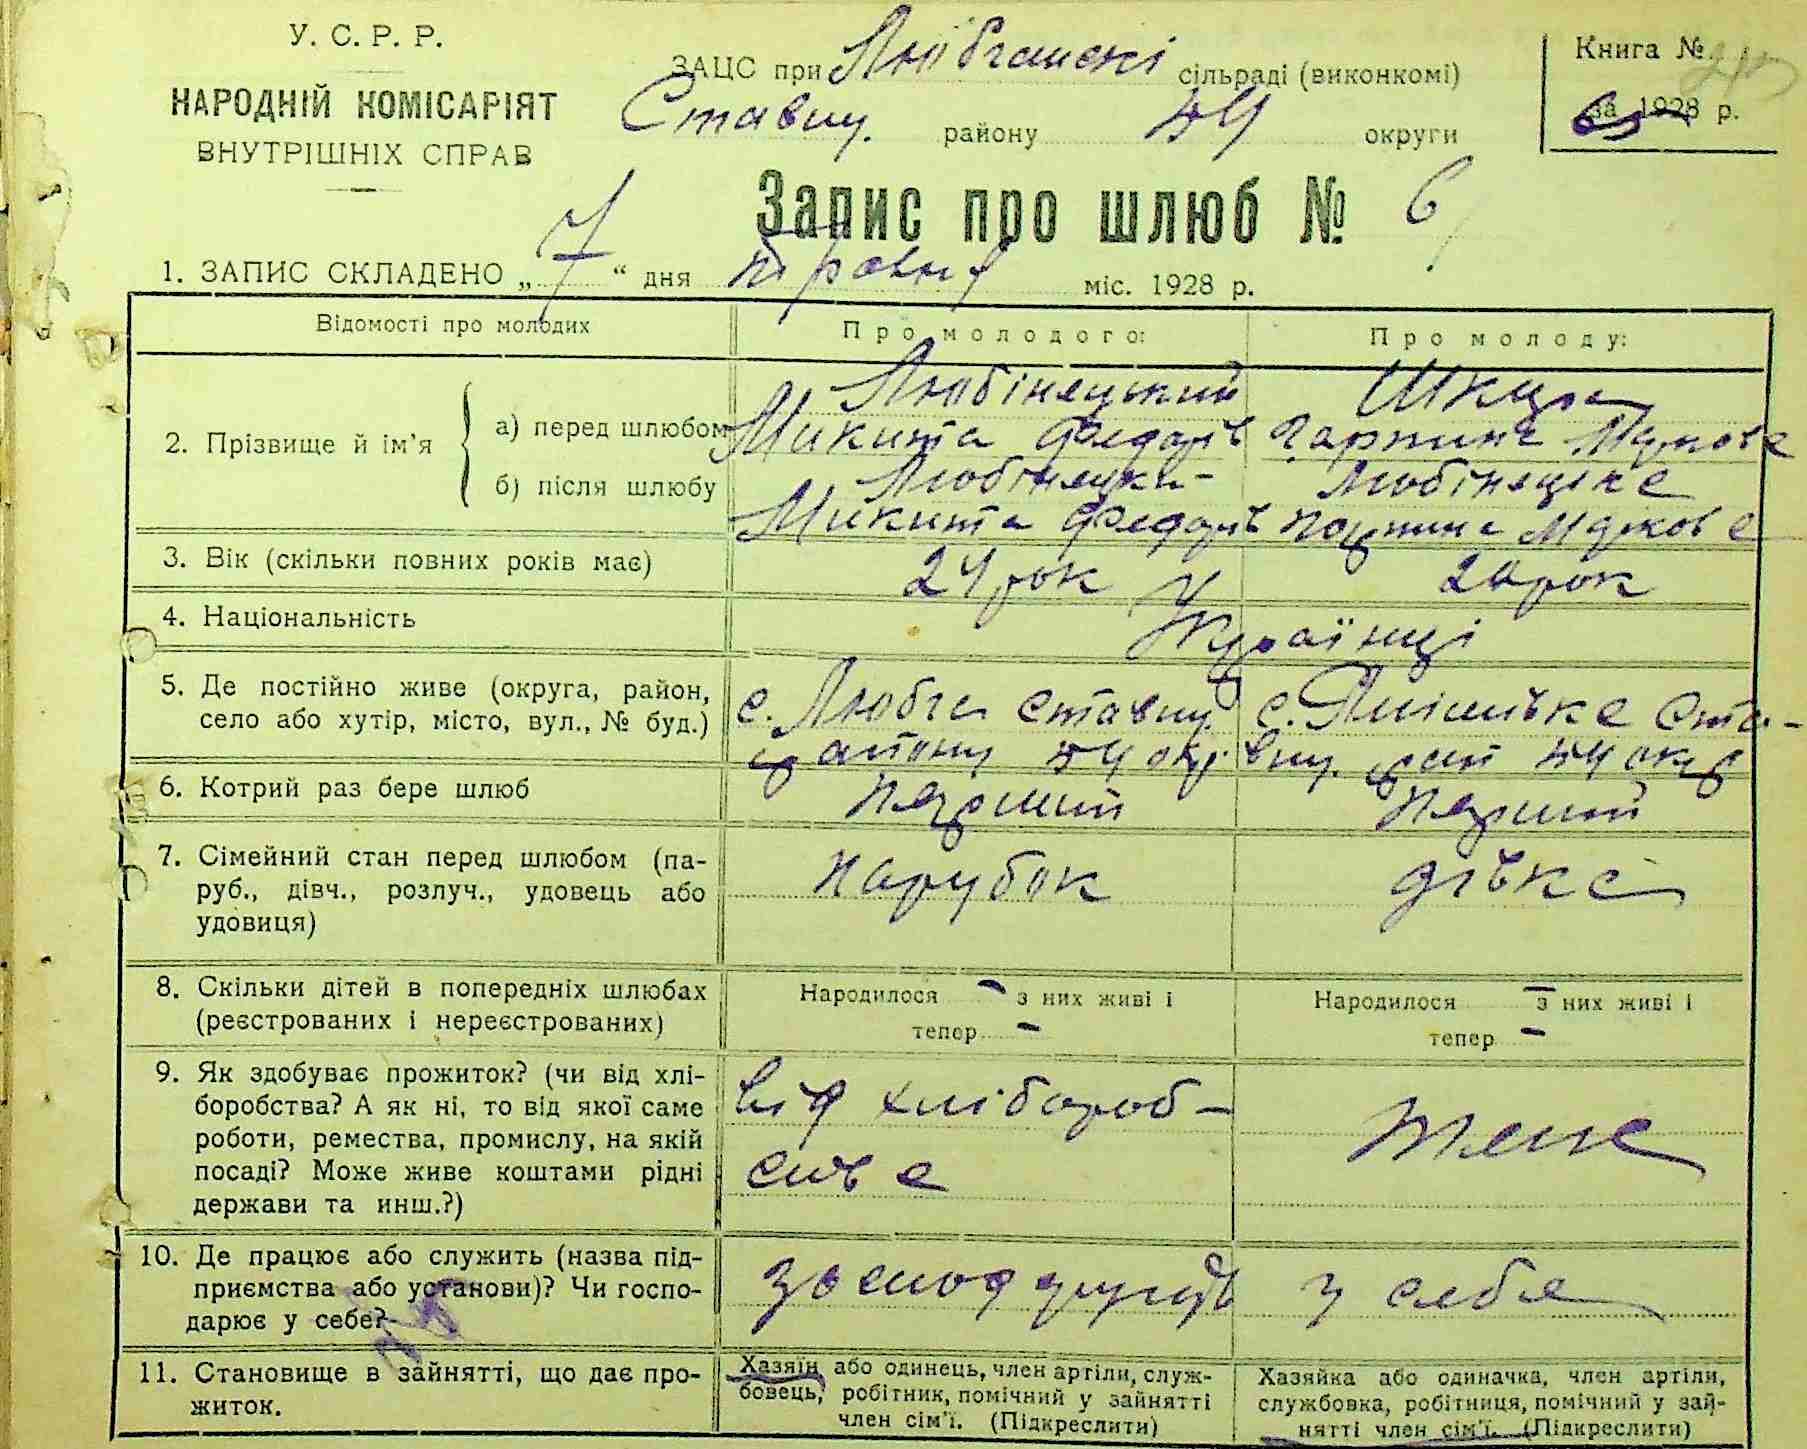 У. С. Р. Р.
НАРОДНІЙ КОМІСАРІЯТ
ВНУТРІШНІХ СПРАВ
ЗАЦС при сільраді (виконкомі)
Ставищ. району БЦ округи
Книга №
за 1928 р.
Запис про шлюб № 6
1. ЗАПИС СКЛАДЕНО „ 7 “ дня травня міс. 1928 р.
Відомості про молодих
Про молодого:
Про молоду:
2. Прізвище й ім’я
а) перед шлюбом
Любінецький
Микита Федорів
Шкура
Маркова
б) після шлюбу
Любінецки-
Микита Федорів
Любінецька
Маркова
3. Вік (скільки повних років має)
24 рок
20 рок
4. Національність
Українці
5. Де постійно живе (округа, район,
село або хутір, місто, вул., № буд.)
с. Любча Ставищ.
району БЦ окр.
с. Ста-
вищ. рай БЦ окр
6. Котрий раз бере шлюб
перший
перший
7. Сімейний стан перед шлюбом (па-
руб., дівч., розлуч., удовець або
удовиця)
парубок
дівка
8. Скільки дітей в попередніх шлюбах
(реєстрованих і нереєстрованих)
Народилося - з них живі і
тепер -
Народилося - з них живі і
тепер -
9. Як здобуває прожиток? (чи від хлі-
боробства? А як ні, то від якої саме
роботи, ремества, промислу, на якій
посаді? Може живе коштами рідні
держави та инш.?)
від хлібороб-
ства
теж
10. Де працює або служить (назва під-
приємства або установи)? Чи госпо-
дарює у себе?
у себе
11. Становище в зайнятті, що дає про-
житок.
Хазяїн або одинець, член артіли, служ-
бовець, робітник, помічний у зайнятті
член сім’ї. (Підкреслити)
Хазяйка або одиначка, член артіли,
службовка, робітниця, помічний у зай-
нятті член сім’ї. (Підкреслити)